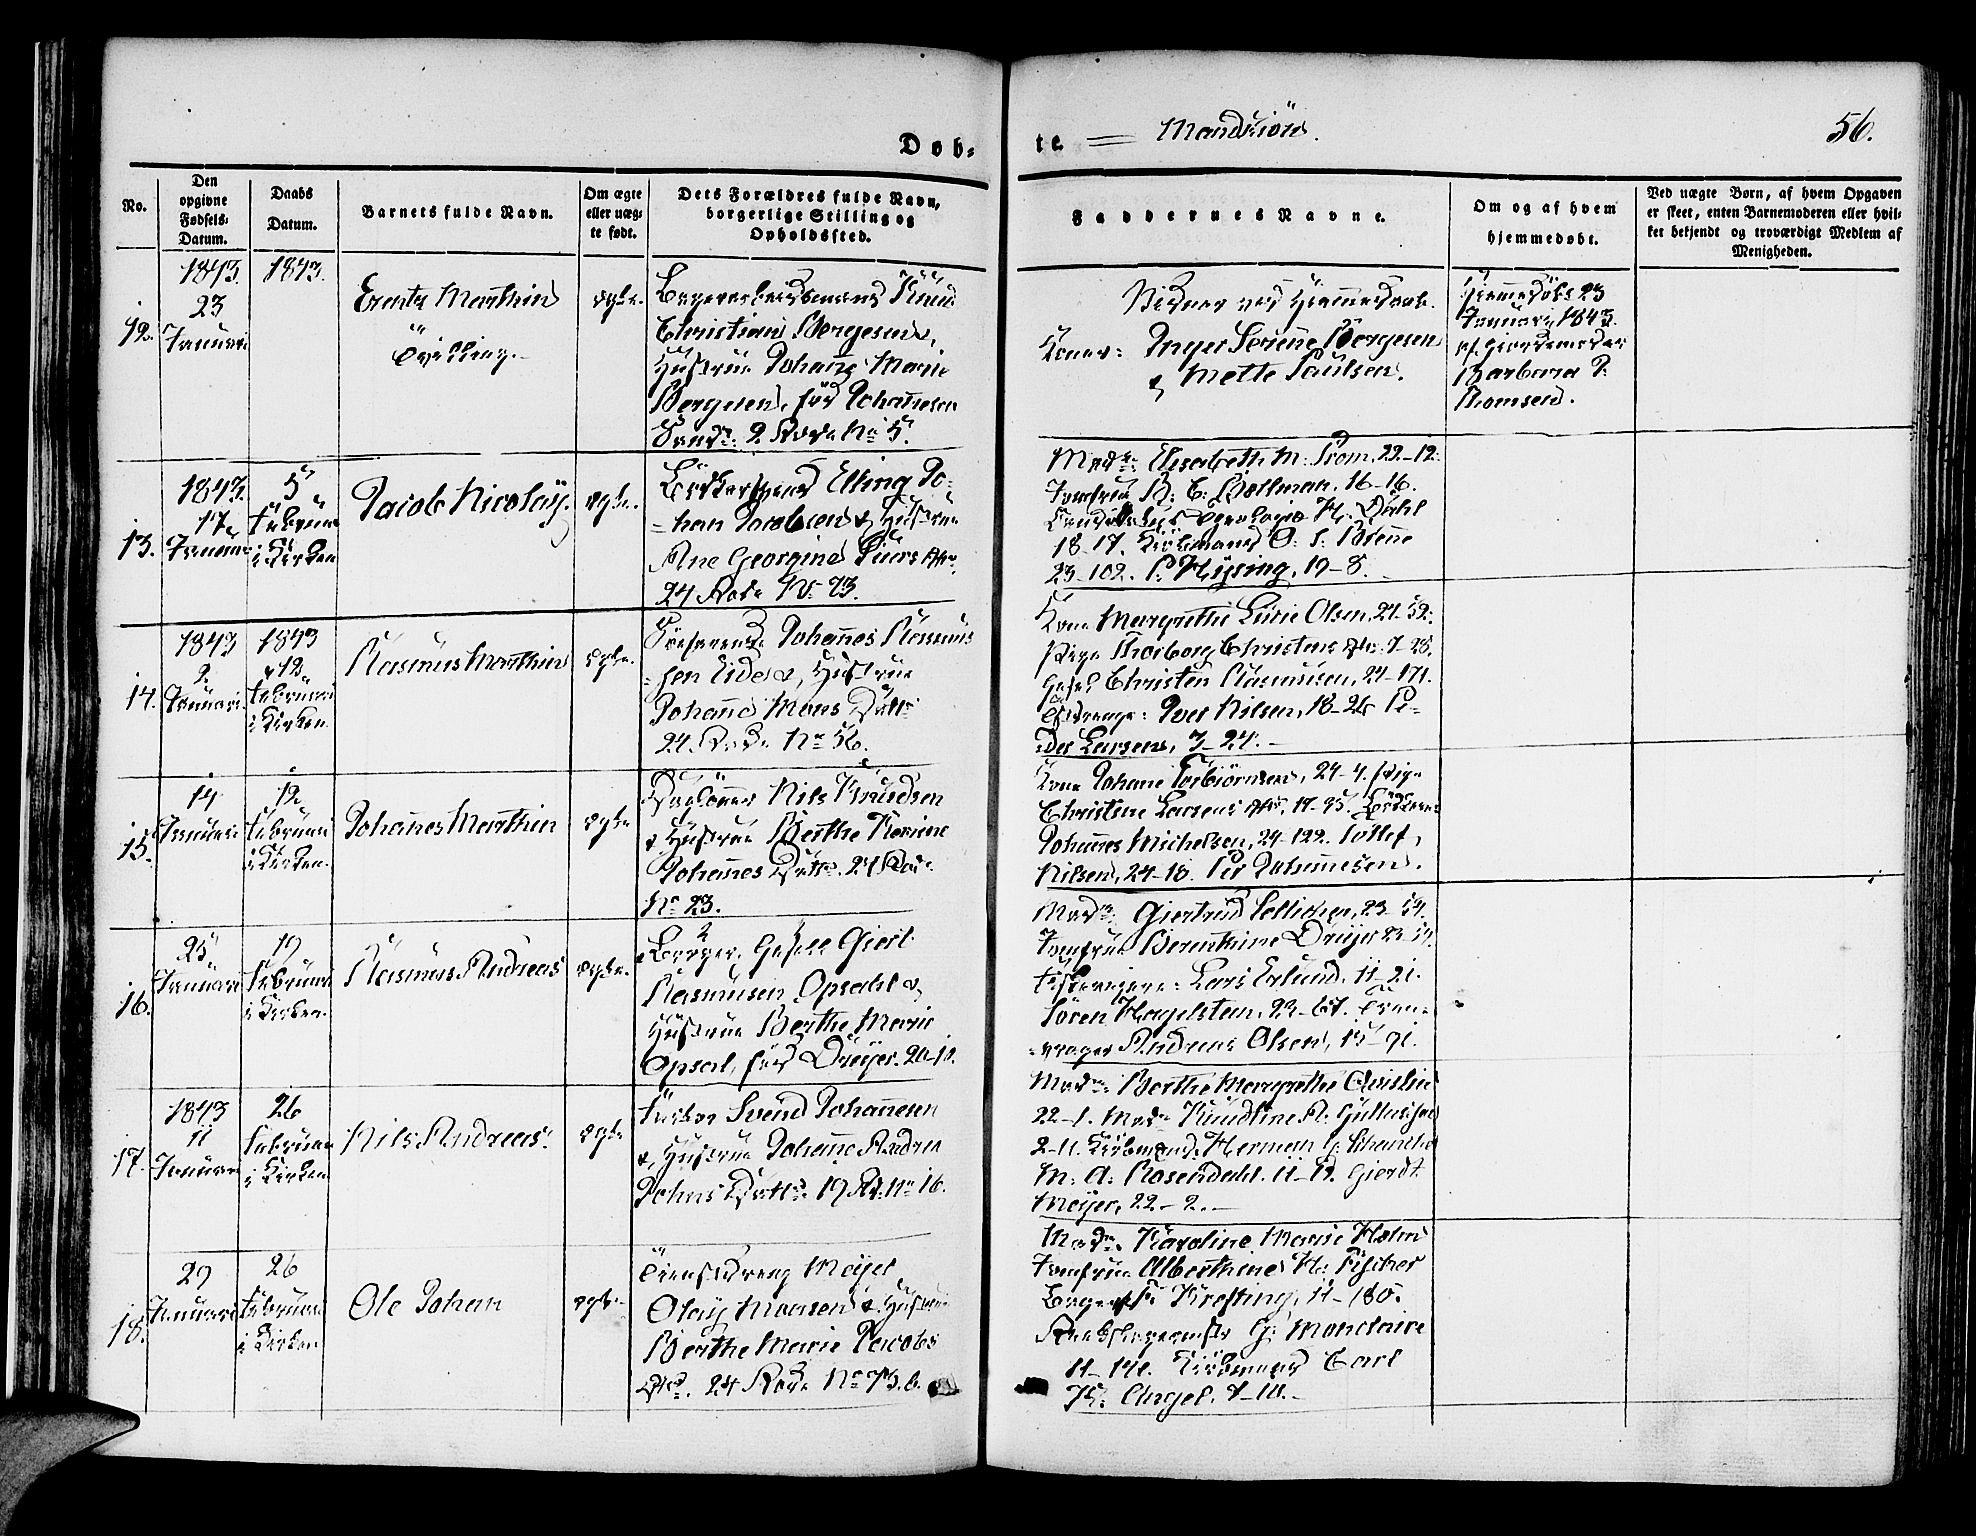 Døb-
te. = Mandkiön.
56.
No.
Den opgivne Fødsels-Datum.
Daabs Datum.
Barnets fulde Navn.
Om ægte eller uægte født.
Dets Forældres fulde Navn, borgerlige Stilling og Opholdssted.
Faddernes Navne.
Om og af hvem hjemmedøbt.
Ved uægte Børn, af hvem Opgaven er skeet, enten Barnemoderen eller hvilket bekjendt og troværdigt Medlem af Menigheden.
12.
1843.
23
Januari
1843.
Marthin
Tvilling.
ægte.
Knud
Christian Bergesen,
Hustrue Johanne Marie
Bergesen, fød Johannesen
2 Rode No 5.
Vidner ved Hiemmedaab.
Koner: Inger Serine Bergesen
& Mette Paulsen.
Hiemmedöbt 23
Januari 1843.
af Giordemoder
Barbara P.
Thomsen.
13.
1843.
17
Januari
5
Februari
i Kirken
Jacob Nicolay.
ægte.
Elling Jo-
=han Jacobsen & Hustrue
Ane Georgine
24 Rode No. 73.
Madm: Elisabeth M: From, 22-12.
Jomfrue B: C: Bøllman, 16-16.
H: Dahl
18-17. Kiöbmand O: S: Steene
23-102. P: Hysing, 19-8.
14.
1843
2
Januari
1843
12
Februari
i Kirken.
Rasmus Marthin
ægte.
Johannes Rasmus
=sen Eide &, Hustrue
Johanne Mons Datter
24. Rode No 56.
Kone Margrethe Lurie Olsen, 24-52.
Pige Thorborg Christens Dtr: 7-28.
Christen Rasmusen, 24-171.
Iver Nilsen, 18-26 Pe-
der Larsen, 7-24.
15.
14
Januari
12
Februari
i Kirken.
Johannes Marthin
ægte
Nils Knudsen
& Hustrue Berthe Karine
Johannes Datter. 24 Rode
No 23.
Kone Johane Torbiörnsen, 24-4. Pige
Christine Larsens Dtr, 17-95.
Johannes Michelsen, 24-122. Tollef
Nilsen, 24-18. Per Johannesen.
16.
25
Januari
19
Februari
i Kirken.
Rasmus Andreas
ægte.
Borger Giert
Rasmusen Opsahl &
Hustrue Berthe Marie
Opsal, fød Dreyer. 20-10.
Madm: Giertrud 23-54.
Jomfrue Berenthine Dreyer 23-54.
Lars Erlund, 11-21.
Sören Hagelsteen, 23-67.
Andreas Olsen, 15-91.
17.
1843
11
Januari
26
Februari
i Kirken
Nils Andreas.
ægte
Fisker Svend Johannesen
&, Hustrue Johanne Andrea
Johns Datter. 19 Rd. No 16.
Madm: Berthe Margrethe
22-1. Madm Knudline A:
2-11. Kiöbmand Herman G:
M: A: Rosendahl. 11-12. Gierdt
Meyer, 22-2.
18.
29
Januari
26
Februari
i Kirken
Ole Johan
ægte
Meyel
Olay Monsen & Hustrue
Berthe Marie Jacobs
Dtr. 24 Rode No 73.b.
Madm. Karoline Marie Holm
Jomfrue Alberthine H: Fischer
Krefting, 11-180.
G: Monclaire
11-141. Kiöbmand Carl
Angel. 7-10.